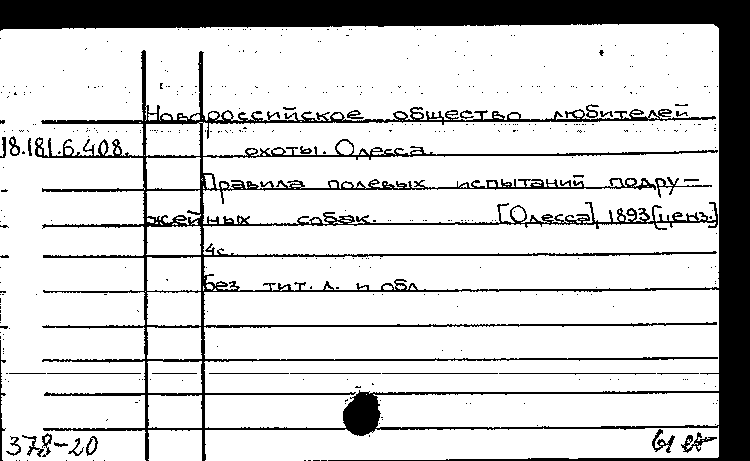 Новороссийское общество любителей
18.181.6.408. охоты. Одесса.
Правила полевых испытаний подру-
жейных собак. [Одесса], 1893[ценз.]
4с.
Без тит. л. и обл.
378-20 61